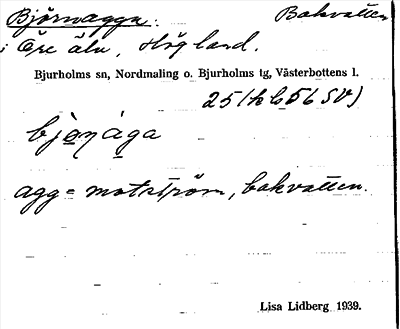 Björnagga: Bakvatten
i Öre älv, Högland.
Bjurholms sn, Nordmaling o. Bjurholms tg, Västerbottens l.
25 (hb 56 SV)
bjø̱n̥a̱ga
agg = motström, bakvatten.
Lisa Lidberg 1939.